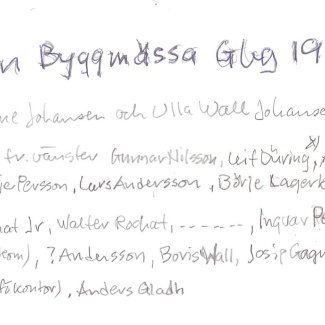 n Byggmässa Gbg 19
ne Johansen och Ulla Wall Johanse
fr. vänster Gunnar Nilsson, Leif Düring, x)
je Persson, Lars Andersson, Börje Lagerk
at Jr, Walter Rochat, -------, Ingvar Pe
om), ?Andersson, Boris Wall, Josip Gagu
kontor), Anders Gladh